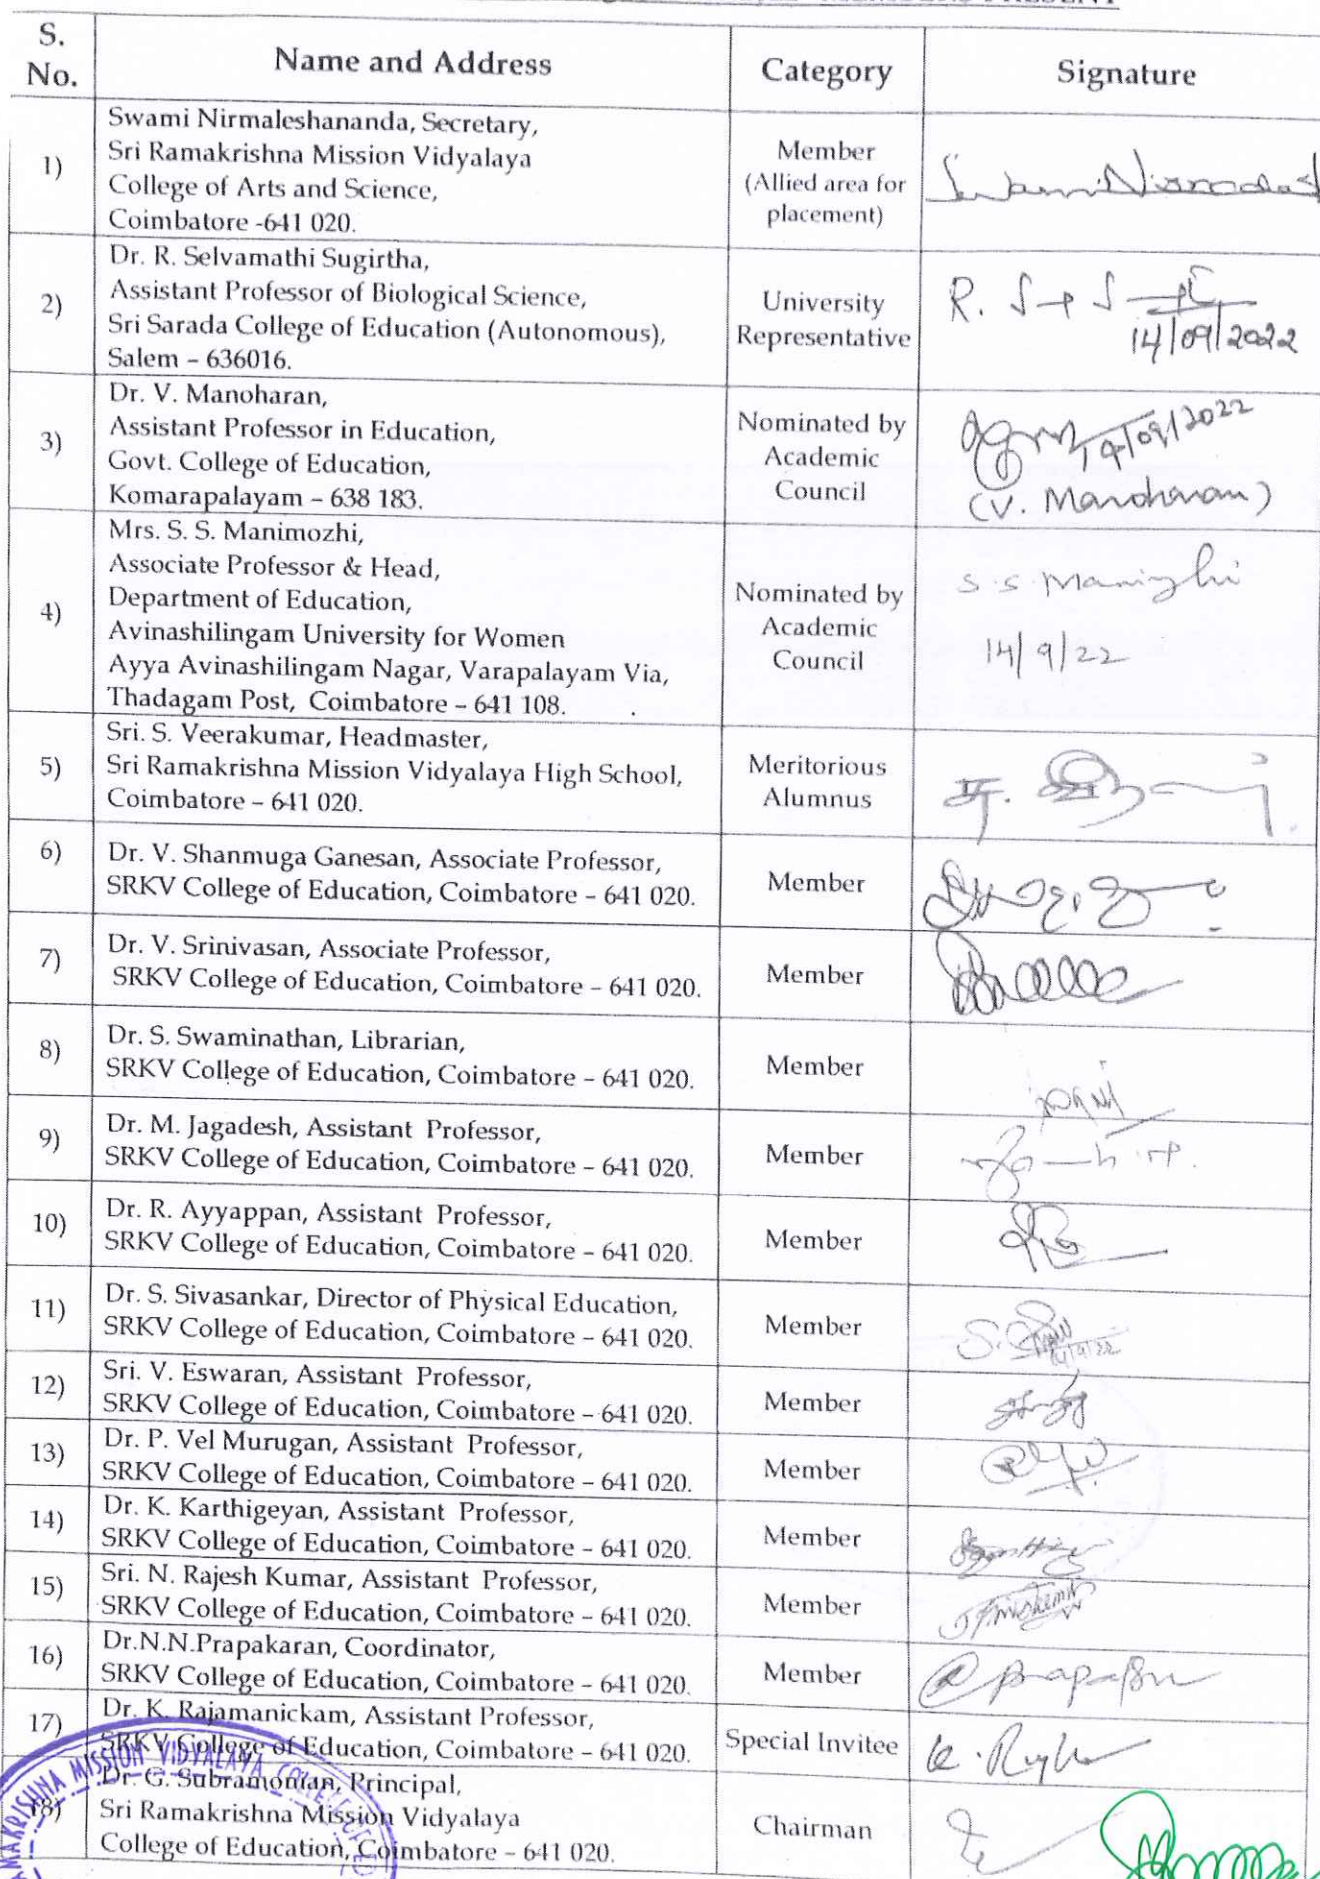 MEMBERS PRESENT
S. No.
Name and Address
Category
Signature
1)
Swami Nirmaleshananda, Secretary,
Sri Ramakrishna Mission Vidyalaya
College of Arts and Science,
Coimbatore -641 020.
Member
(Allied area for
placement)
2)
Dr. R. Selvamathi Sugirtha,
Assistant Professor of Biological Science,
Sri Sarada College of Education (Autonomous),
Salem – 636016.
University
Representative
R. S
14/09/2022
3)
Dr. V. Manoharan,
Assistant Professor in Education,
Govt. College of Education,
Komarapalayam – 638 183.
Nominated by
Academic
Council
14/09/2022
(V. Manoharan)
4)
Mrs. S. S. Manimozhi,
Associate Professor & Head,
Department of Education,
Avinashilingam University for Women
Ayya Avinashilingam Nagar, Varapalayam Via,
Thadagam Post, Coimbatore – 641 108.
Nominated by
Academic
Council
14/9/22
5)
Sri. S. Veerakumar, Headmaster,
Sri Ramakrishna Mission Vidyalaya High School,
Coimbatore – 641 020.
Meritorious
Alumnus
6)
Dr. V. Shanmuga Ganesan, Associate Professor,
SRKV College of Education, Coimbatore – 641 020.
Member
7)
Dr. V. Srinivasan, Associate Professor,
SRKV College of Education, Coimbatore – 641 020.
Member
8)
Dr. S. Swaminathan, Librarian,
SRKV College of Education, Coimbatore – 641 020.
Member
9)
Dr. M. Jagadesh, Assistant Professor,
SRKV College of Education, Coimbatore – 641 020.
Member
10)
Dr. R. Ayyappan, Assistant Professor,
SRKV College of Education, Coimbatore – 641 020.
Member
11)
Dr. S. Sivasankar, Director of Physical Education,
SRKV College of Education, Coimbatore – 641 020.
Member
14/9/22
12)
Sri. V. Eswaran, Assistant Professor,
SRKV College of Education, Coimbatore – 641 020.
Member
13)
Dr. P. Vel Murugan, Assistant Professor,
SRKV College of Education, Coimbatore – 641 020.
Member
14)
Dr. K. Karthigeyan, Assistant Professor,
SRKV College of Education, Coimbatore – 641 020.
Member
15)
Sri. N. Rajesh Kumar, Assistant Professor,
SRKV College of Education, Coimbatore – 641 020.
Member
16)
Dr.N.N.Prapakaran, Coordinator,
SRKV College of Education, Coimbatore – 641 020.
Member
17)
Dr. K. Rajamanickam, Assistant Professor,
SRKV College of Education, Coimbatore – 641 020.
Special Invitee
18)
Dr. G. Subramonian, Principal,
Sri Ramakrishna Mission Vidyalaya
College of Education, Coimbatore – 641 020.
Chairman
MISSION VIDYALAYA COLLEGE OF